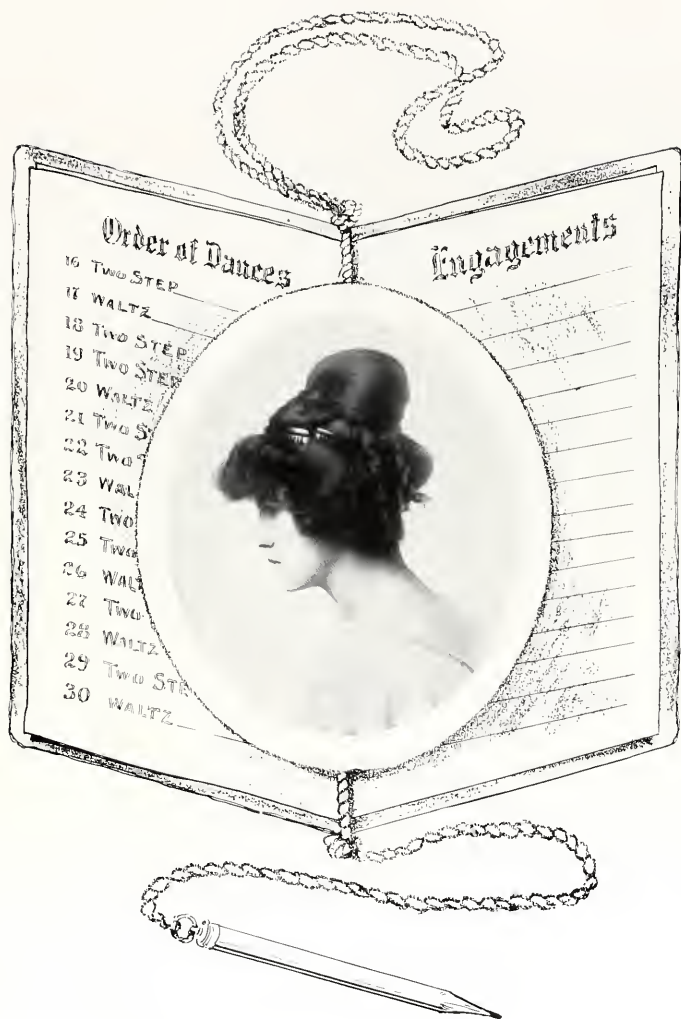 Order of Dances
16 Two Step
17 Waltz
18 Two Step
19 Two Step
20 Waltz
21 Two S
22 Two
23 Wal
24 Two
25 Two
26 Walt
27 Two
28 Waltz
29 Two Ste
30 Waltz
Engagements